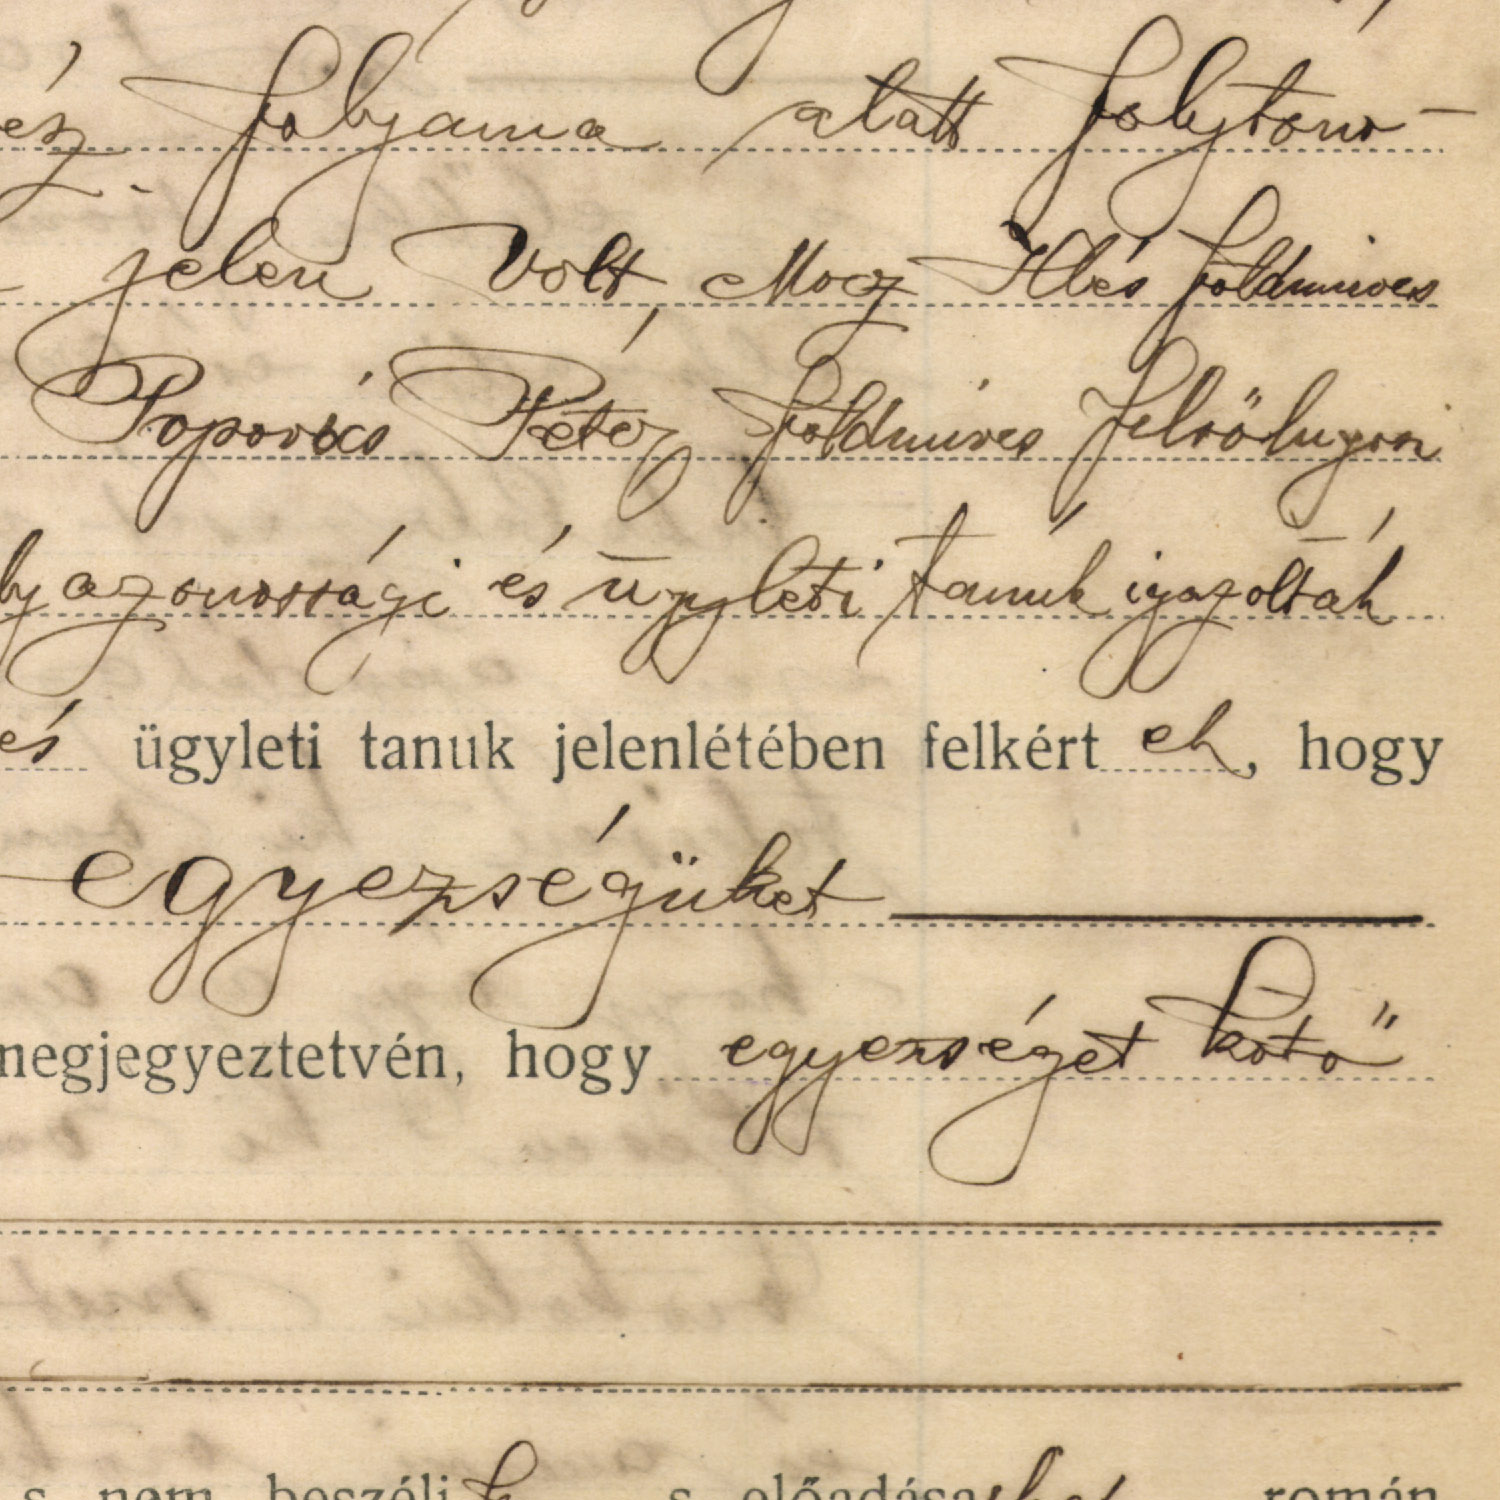 ész folyama alatt folytono-
jelen volt, Mocz Illés földmives
Popovics Péter földmives felsőlugosi
azonossági és ügyleti tanuk igazolták
és ügyleti tanuk jelenlétében felkértek, hogy
egyezségüket
megjegyeztetvén, hogy egyezséget kötő
s nem beszélik s előadásukat román